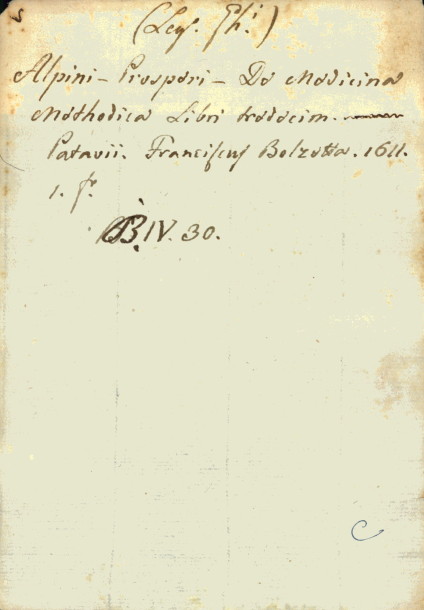 S
(Leg. Ghi)
Alpini - Prosperi - De Medicina
Methodica Libri tredecim.
Patavii. Franciscus Bolzetta. 1611.
1. f°.
B. IV. 30.
C